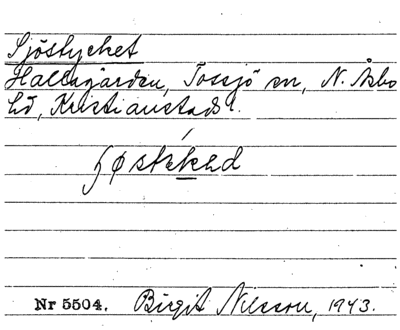 Sjöstycket
Hallagården, Tossjö sn, N. Åsbo
hd, Kristianstads l.
Nr 5504. Birgit Nilsson, 1943.